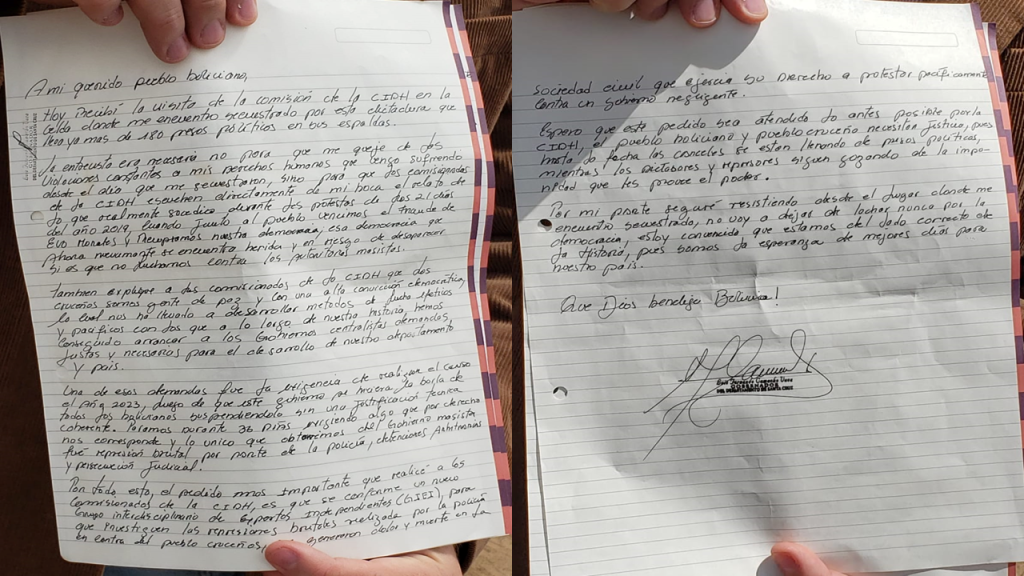 A mi querido pueblo boliviano,
Hoy Recibí la visita de la comisión de la CIDH en la
celda donde me encuentro secuestrado por esta dictadura que
lleva ya mas de 180 presos políticos en sus espaldas.
La entrevista era necesaria no para que me queje de las
violaciones constantes a mis derechos humanos que vengo sufriendo
desde el día que me secuestraron, sino para que los comisionados
de la CIDH escuchen directamente de mi boca el relato de
lo que realmente sucedió durante las protestas de los 21 días
del año 2019, cuando junto al pueblo vencimos el fraude de
Evo Morales y Recuperamos nuestra democracia, esa democracia que
Ahora nuevamente se encuentra herida y en riesgo de desaparecer
si es que no luchamos contra los masistas.
Tambien explique a los comisionados de la CIDH que los
cruceños somos gente de paz y con una alta convicción democrática,
lo cual nos ha llevado a desarrollar metodos de lucha
y pacíficos con los que a lo largo de nuestra historia, hemos
conseguido arrancar a los Gobiernos centralistas demandas
justas y necesarias para el desarrollo de nuestro departamento
y país.
Una de esas demandas fue la exigencia de realizar el censo
el Año 2023, luego de que este gobierno por huyera, la
todos los bolivianos suspendiendolo sin una justificación técnica
coherente. Paramos durante 36 Días exigiendo algo que por derecho
nos corresponde y lo unico que obtuvimos del Gobierno masista
fue represión brutal por parte de la policía, detenciones Arbitrarias
y persecución Judicial.
Por todo esto, el pedido mas importante que realicé a los
Comisionados de la CIDH, es que se conforme un nuevo
Grupo interdisciplinario de Expertos Independientes (GIEI), para
que investiguen las represiones brutales realizada por la policía
en contra del pueblo cruceño, generaron dolor y muerte en la
sociedad civil que ejercía su Derecho a protestar pacíficamente
contra un gobierno negligente.
Espero que este pedido sea atendido lo antes posible por la
CIDH, el pueblo boliviano y pueblo cruceño necesitan Justicia, pues
hasta la fecha las carceles se estan llenando de presos políticos,
mientras los Dictadores y represores siguen gozando de la impu-
nidad que les provee el poder.
Por mi parte seguiré resistiendo desde el lugar donde me
encuentro secuestrado, no voy a dejar de luchar nunca por la
democracia, estoy convencido que estamos del lado correcto de
la Historia, pues somos la esperanza de mejores dias para
nuestro país.
Que Dios bendiga Bolivia!